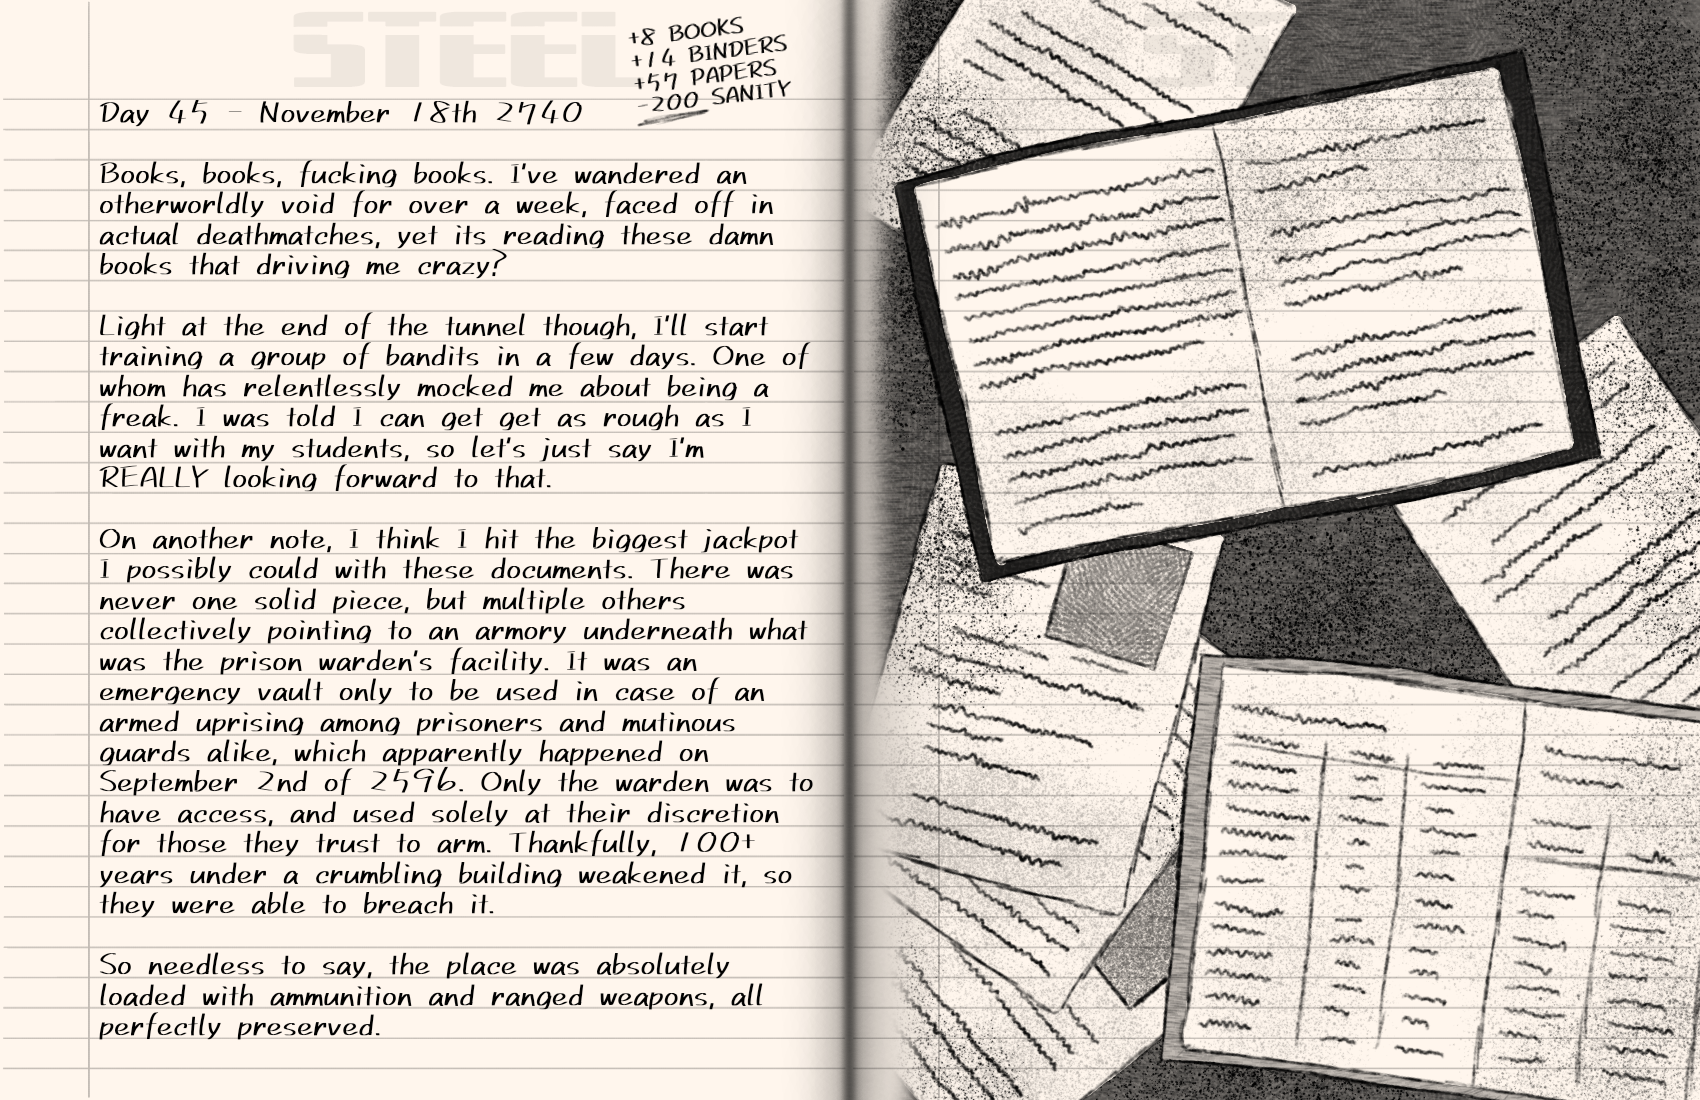 STEEL
+8 BOOKS
+14 BINDERS
+57 PAPERS
-200 SANITY
Day 45 - November 18th 2740
Books, books, fucking books. I've wandered an
otherworldly void for over a week, faced off in
actual deathmatches, yet its reading these damn
books that driving me crazy?
Light at the end of the tunnel though, I'll start
training a group of bandits in a few days. One of
whom has relentlessly mocked me about being a
freak. I was told I can get get as rough as I
want with my students, so let's just say I'm
REALLY looking forward to that.
On another note, I think I hit the biggest jackpot
I possibly could with these documents. There was
never one solid piece, but multiple others
collectively pointing to an armory underneath what
was the prison warden's facility. It was an
emergency vault only to be used in case of an
armed uprising among prisoners and mutinous
guards alike, which apparently happened on
September 2nd of 2596. Only the warden was to
have access, and used solely at their discretion
for those they trust to arm. Thankfully, 100+
years under a crumbling building weakened it, so
they were able to breach it.
So needless to say, the place was absolutely
loaded with ammunition and ranged weapons, all
perfectly preserved.